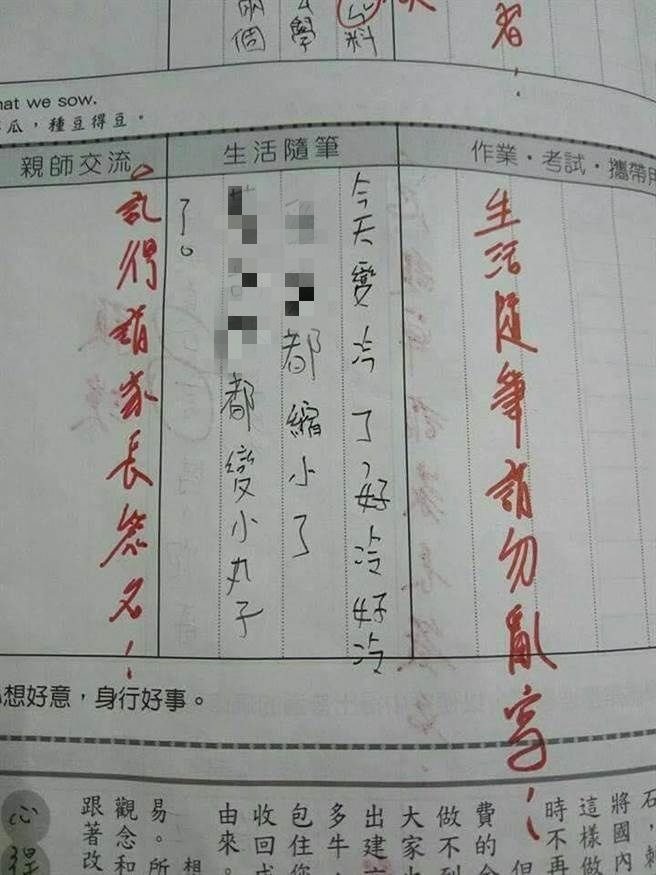 兩個
學
料
者！
hat we sow.
瓜，種豆得豆。
作業·考試·攜帶用
生活隨筆
親師交流
生活隨筆請勿亂寫！
今天變冷了，好冷好冷
都縮小了
都變小丸子
了。
記得請家長簽名！
想好意，身行好事。
石，剌
將國內
這樣做
時不再
但
費的金
做不到
大家
出建
多牛，
包住您
收回成
由來。
想
易。所
觀念和
跟著改
心得